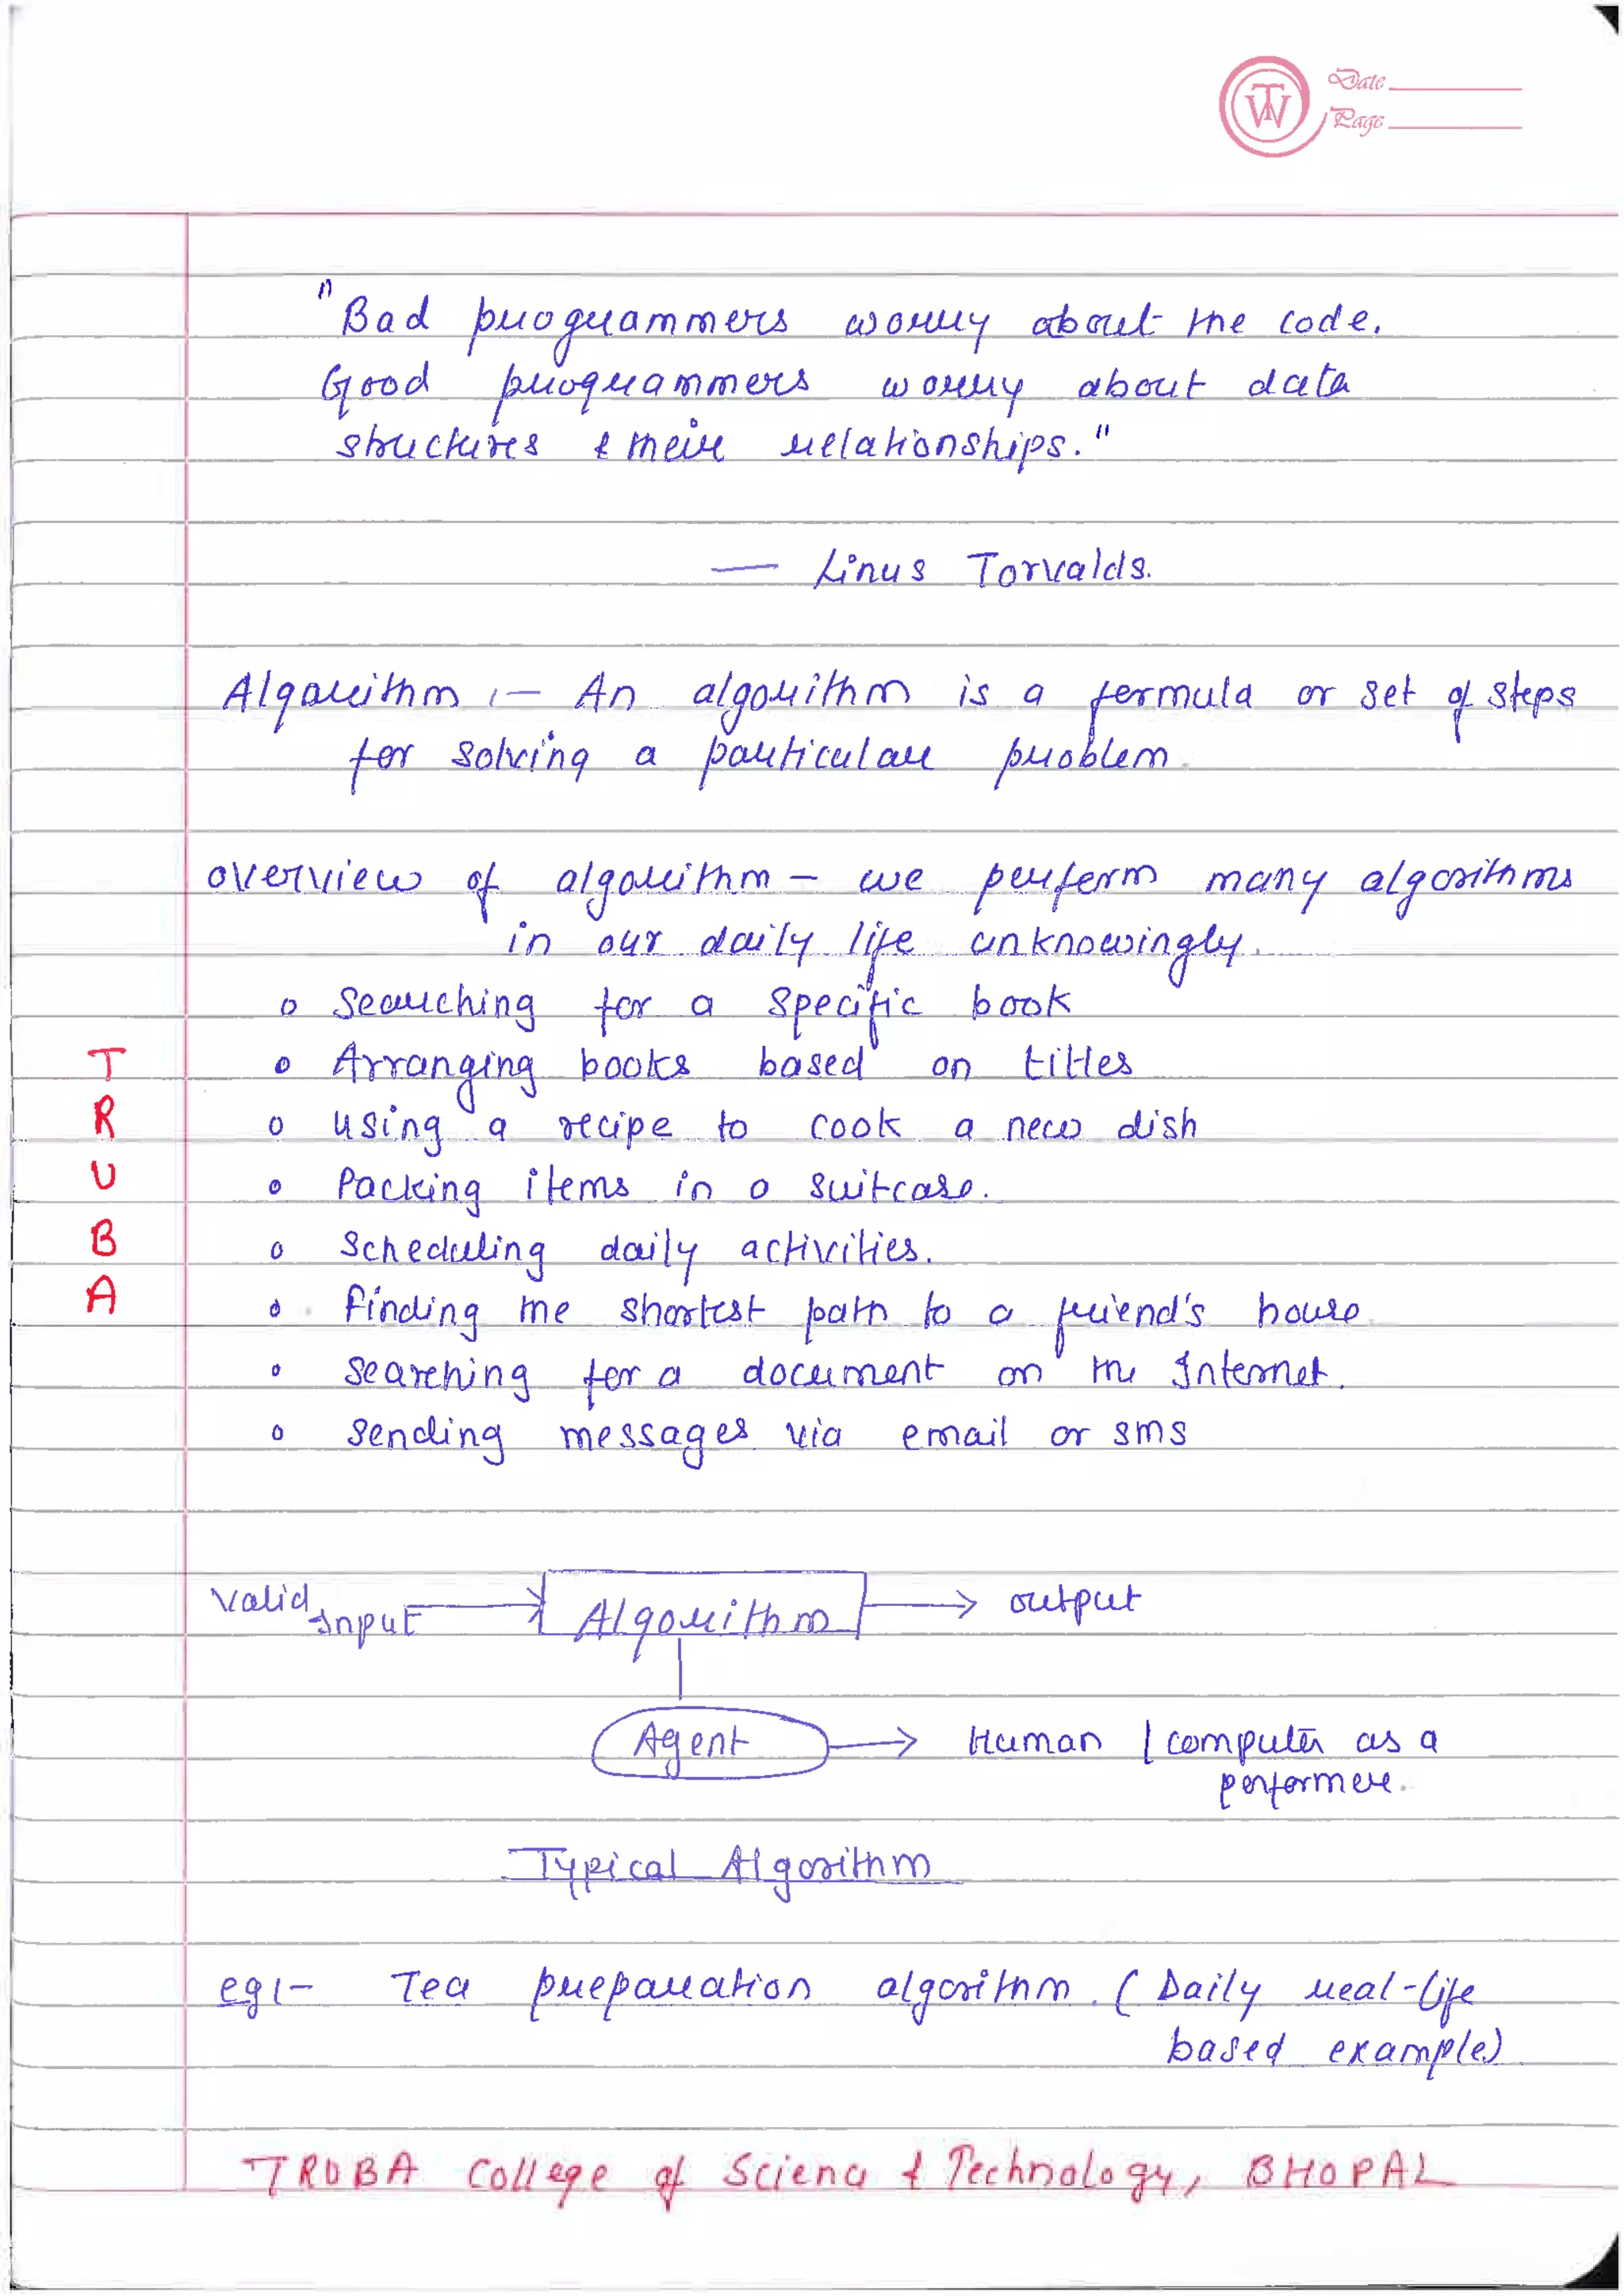 TW
Date
Page
"Bad programmers worry about the code.
Good programmers worry about data
structures & their relationships."
— Linus Torvalds.
Algorithm :- An algorithm is a formula or set of steps
for solving a particular problem.
overview of algorithm - we perform many algorithms
in our daily life unknowingly.
o Searching for a specific book
o Arranging books based on titles
o using a recipe to cook a new dish
o Packing items in a suitcase.
o Scheduling daily activities.
o Finding the shortest path to a friend's house
o Searching for a document on the Internet.
o Sending messages via email or sms
T
R
U
B
A
Valid Input → Algorithm → output
Agent → Human / computer as a
performer.
Typical Algorithm
eg:- Tea preparation algorithm. (Daily real-life
based example)
TRUBA College of Science & Technology, BHOPAL